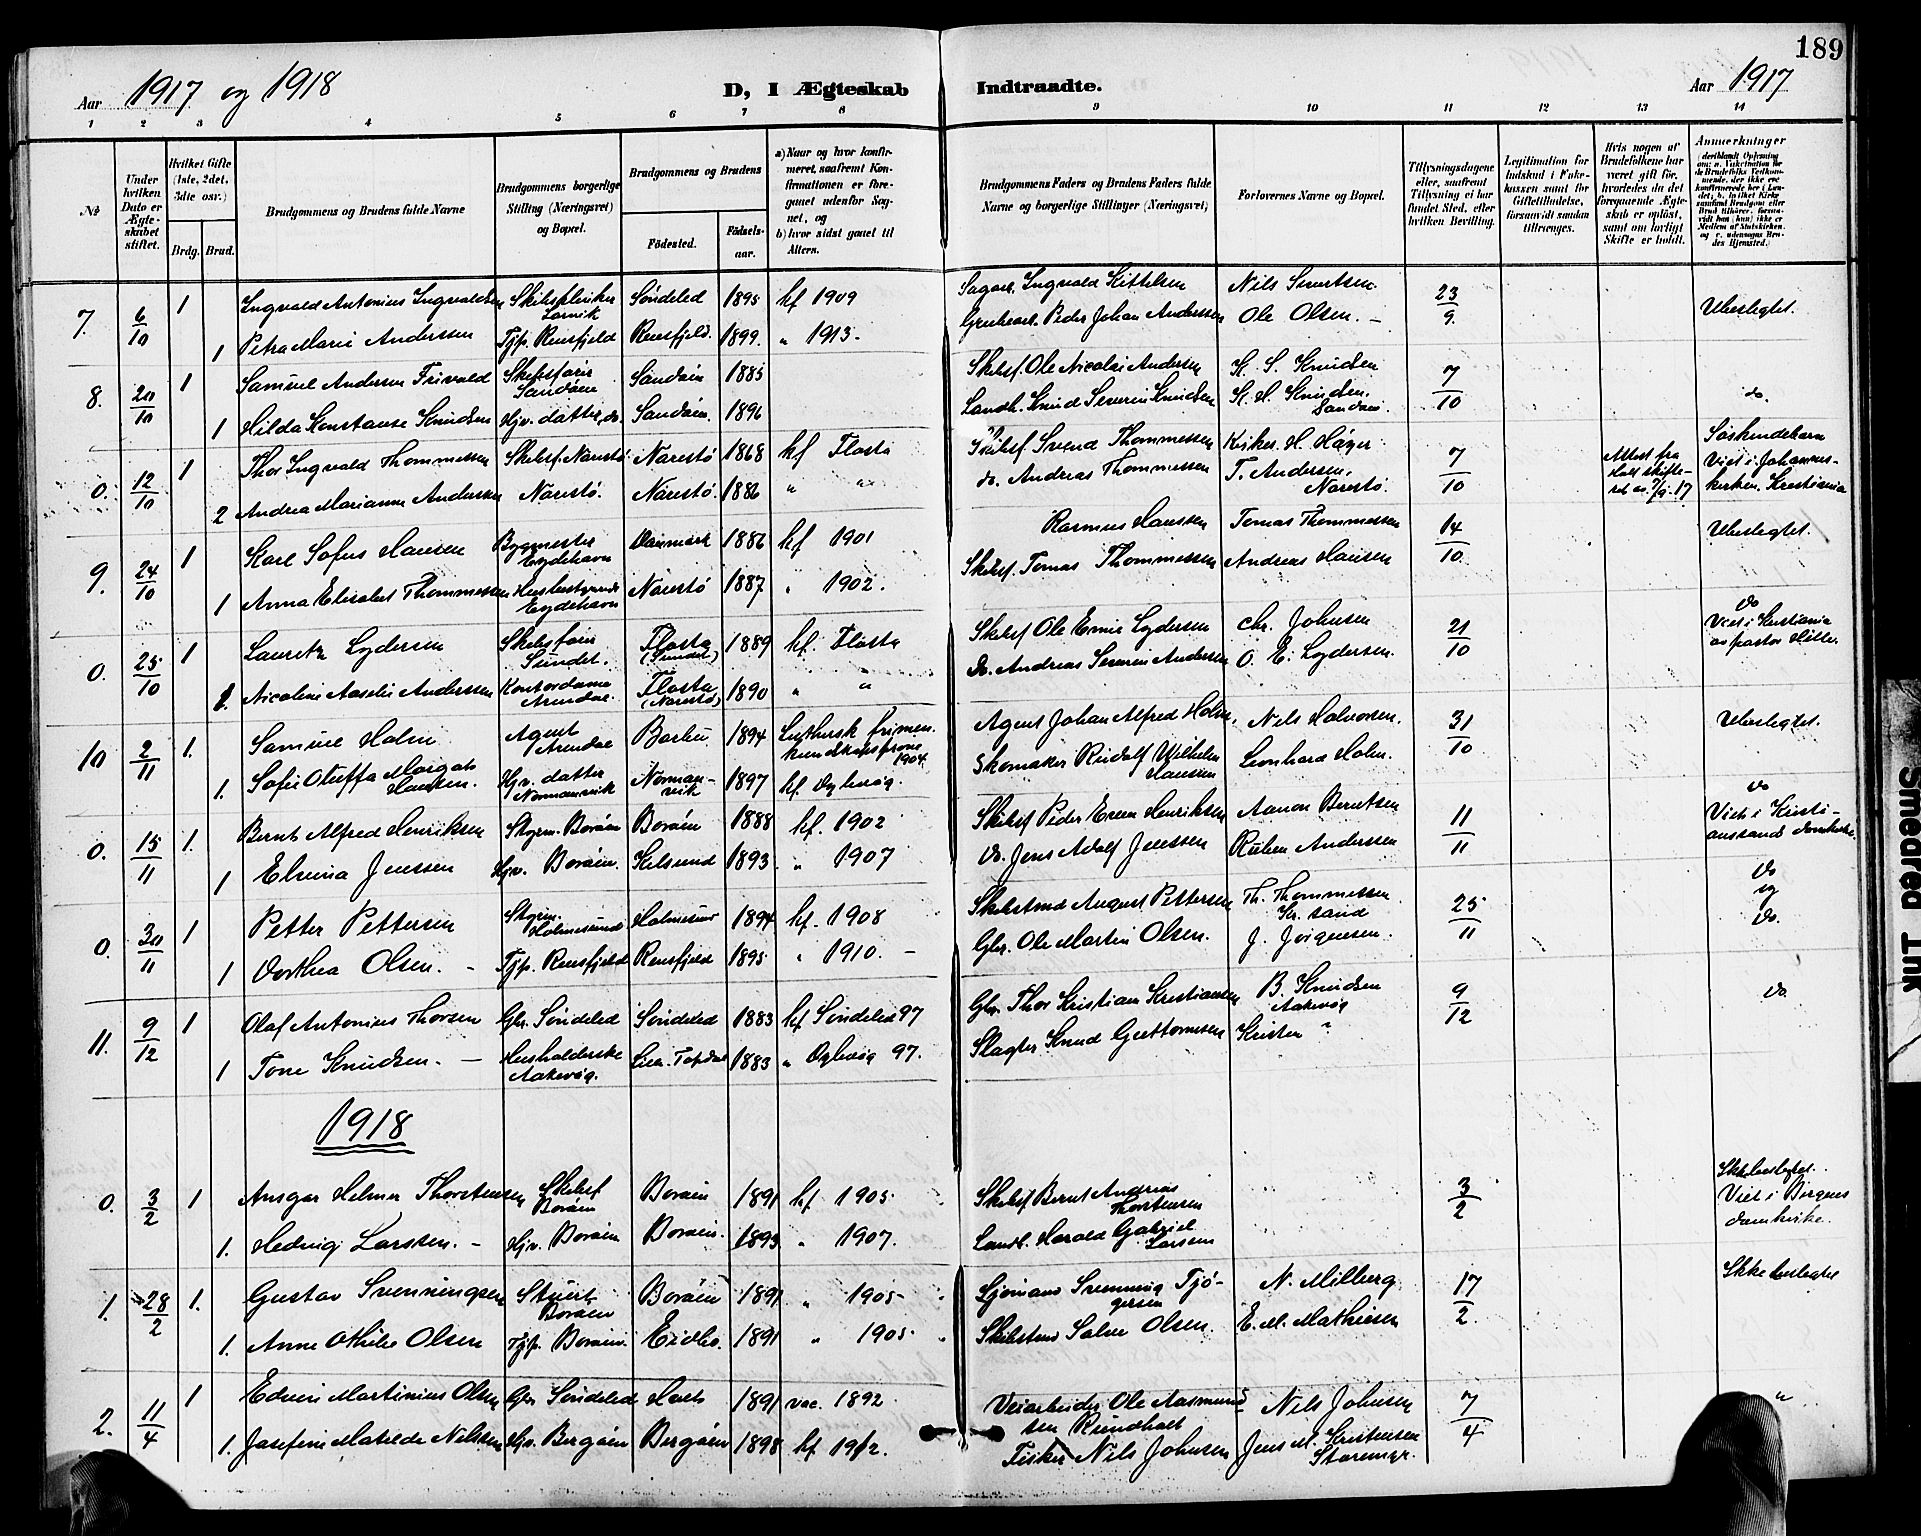 189
Aar 1917 og 1918
D, I Ægteskab Indtraadte.
Aar 1917
1 2 3 4 5 6 7 8 9 10 11 12 13 14
№
Under hvilken Dato er Ægteskabet stiftet.
Hvilket Gifte (1ste, 2det, 3die osv.)
Brdg. Brud.
Brudgommens og Brudens fulde Navne
Brudgommens borgerlige Stilling (Næringsvei) og Bopæl.
Brudgommens og Brudens
Fødested.
Fødselsaar.
a) Naar og hvor konfirmeret, saafremt Konfirmationen er foregaaet udenfor Sognet, og
b) hvor sidst gaaet til Alters.
Brudgommens Faders og Brudens Faders fulde Navne og borgerlige Stillinger (Næringsvei)
Forlovernes Navne og Bopæl.
Tillysningsdagene eller, saafremt Tillysning ei har fundet Sted, efter hvilken Bevilling.
Legitimation for Indskud i Enkekassen samt for Giftetilladelse, forsaavidt saadan tiltrænges.
Hvis nogen af Brudefolkene har været gift før, hvorledes da det foregaaende Ægteskab er opløst, samt om lovligt Skifte er holdt.
Anmærkninger
7. 6/10 1 Ingvald Antonius Ingvaldsen Skibsflinker Larvik Søndeled 1895 kf 1909 Sagarb. Ingvald Kittelsen Nils Sivertsen 23/9. Ubeslegtet.
1 Petra Marie Anderssen Tjp. Rensfjeld Rensfjeld. 1899. " 1913. Peder Johan Anderssen Ole Olsen. –
8. 20/10 1 Samuel Andersen Frivold Skibsfører Sandøen Sandøen 1885 Skibsf. Ole Nicolai Andersen K. S. Knudsen 7/10 do.
1 Hilda Konstanse Knudsen Hjv. datter, do. Sandøen. 1896 Landh. Knud Severin Knudsen K. H. Knudsen. Sandøen.
0. 12/10 1 Thor Ingvald Thommessen Skibsf. Narestø Narestø 1868 kf Flosta Skibsf Svend Thommessen Kirkes. H. Høyer 7/10 Attest fra Holt skifteret av 7/9. 17 Søskendebarn Viet i Johanneskirken. Kristiania
2 Andrea Marianne Andersen Narestø. Narestø. 1886 " " do. Andreas Thommessen T. Andersen. Narestø.
9. 24/10 1 Karl Sofus Hansen Bygmester Eydehavn Danmark 1886 kf 1901 Rasmus Hanssen Tomas Thommessen 14/10. Ubeslegtet.
1 Anna Elisabet Thommessen Husbestyrinde Eydehavn Narestø 1887. " 1902. Skibsf. Tomas Thommessen Andreas Hansen
0. 25/10 1 Lauritz Lydersen Skibsfører Sundet. Flosta (Sundet) 1889 kf. Flosta Skibsf Ole Ernie Lydersen Chr. Johnsen 21/10 do Viet i Kristiania av pastor Hille.
1. Nicoline Aaselie Anderssen Kontordame Arendal. Flosta (Narestø) 1890 " " do. Andreas Severin Andersen O. E. Lydersen.
10 2/11 1. Samuel Holm Agent Arendal Barbu. 1894 Luthersk frimen. kundskapsprøve 1904. Agent Johan Alfred Holm. Nils Halvorsen. 31/10 Ubeslegtet.
1. Sofie Margit Hanssen. Hjv. datter Normannvik Normanvik 1897 kf. Dybvåg. Skomaker Rudolf Wilhelm Hanssen Leonhard Holm.
0. 15/11 1. Bernt Alfred Henriksen Styrm. Borøen Borøen 1888 kf. 1902 Skibsf Peder Even Henriksen Aanon Berntsen 11/11 do Viet i Kristiansands domkirke.
1 Elvina Jenssen Hjv. Borøen. Kilsund 1893. " 1907 do. Jens Adolf Jenssen Ruben Anderssen
0. 30/11 1 Petter Pettersen Styrm. Holmesund Holmesund 1894 kf. 1908 Skibstmd August Pettersen Th. Thommessen Kr. sand 25/11 do og do.
1 Dorthea Olsen. – Tjp. Rensfjeld Rensfjeld 1895. " 1910. – Gbr. Ole Martin Olsen. J. Jørgensen.
11. 9/12 1 Olaf Antonius Thorsen Gbr. Søndeled Søndeled 1883 kf Søndeled 97 Gbr. Thor Kristian Kristiansen B. Knudsen Aakevåg 9/12 do.
1 Tone Knudsen. – Husholderske Aakevåg. 1883 " Dybvåg 97. Slagter Knud Guttormsen Kristen "
1918
0. 3/2 1 Ansgar Helmer Thorstensen Skibsf Borøen Borøen 1891 kf 1905. Skibsf Bernt Andreas Thorstensen 3/2 Ikke beslegtet. Viet i Bergens domkirke.
1. Hedvig Larssen. – Hjv. Borøen Borøen. 1893. " 1907. Landh. Harald Gabriel Larssen
1. 28/2 1. Gustav Svenningsen Stuert Borøen Borøen 1891 " 1905 Sjømann Svenning Tjøgersen N. Milberg 17/2. Ikke beslegtet
1. Anne Othilie Olsen Tjp. Borøen. Eidbo. 1891 " 1905. Skibstmd Salve Olsen. E. M. Mathiesen
2. 11/4 1 Edvin Martinius Olsen Gbr Søndeled Holt 1891 vac. 1892. Veiarbeider Ole Aasmundsen Rundholt Nils Johnsen 7/4 "
1. Josefine Matilde Nilsen Hjv. Bergøen Bergøen 1898 kf 1912. Fisker Nils Johnsen Jens M. Kristensen
Smedred Ink